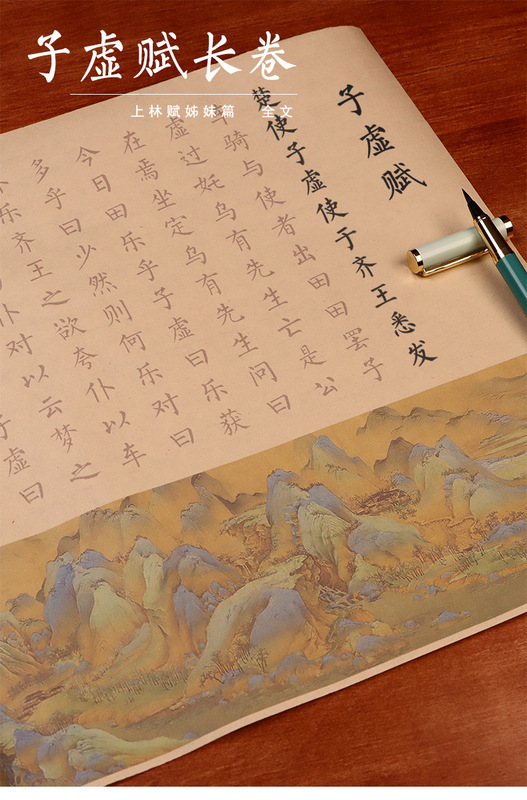 子虚赋长卷
上林赋姊妹篇 全文
子虚赋
楚使子虚使于齐王悉发
车骑与使者出田田罢子
虚过奼乌有先生亡是公
在焉坐定乌有先生问曰
今日田乐乎子虚曰乐获
多乎曰少然则何乐对曰
仆乐齐王之欲夸仆以车
仆对以云梦之
子虚曰